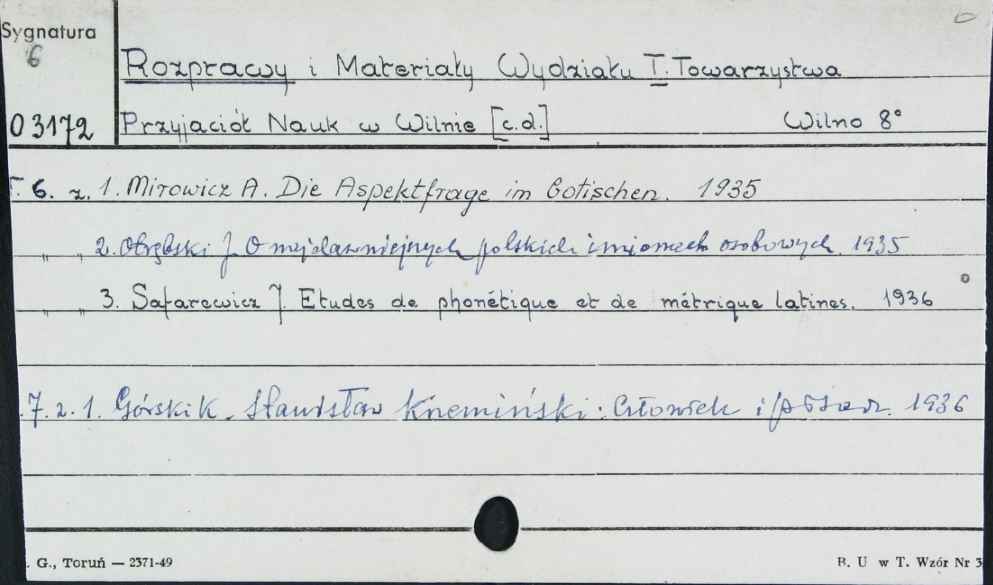 Sygnatura
6
Rozprawy i Materiały Wydziału I. Towarzystwa
03172 Przyjaciół Nauk w Wilnie [c.d.] Wilno 8°
T. 6. z. 1. Mirowicz A. Die Aspektfrage im Gotischen. 1935
" " 2. Otrębski J. O najdawniejszych polskich imionach osobowych. 1935
" " 3. Safarewicz J. Etudes de phonétique et de métrique latines. 1936
.7. z. 1. Górski K. Stanisław Krzemiński: Człowiek i pisarz. 1936
. G., Toruń — 2371-49 B. U w T. Wzór Nr 3